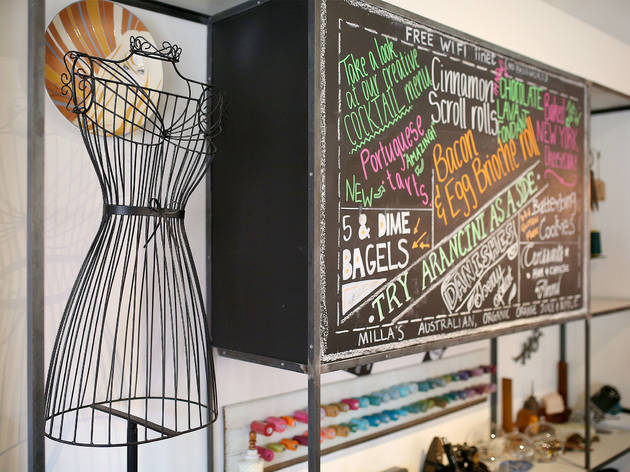 FREE WIFI
Take a look
at our creative
COCKTAIL menu
Cinnamon
Scroll rolls
CHOCOLATE
LAVA
Baked
NEW YORK
Portuguese
tarts
AMAZING!
NEW
Bacon
& Egg Brioche roll
5 & DIME
BAGELS
TRY ARANCINI AS A SIDE
DANISHES
Cookies
Croissants
HAM & CHEESE
Almond
MILLA'S AUSTRALIAN, ORGANIC ORANGE JUICE &